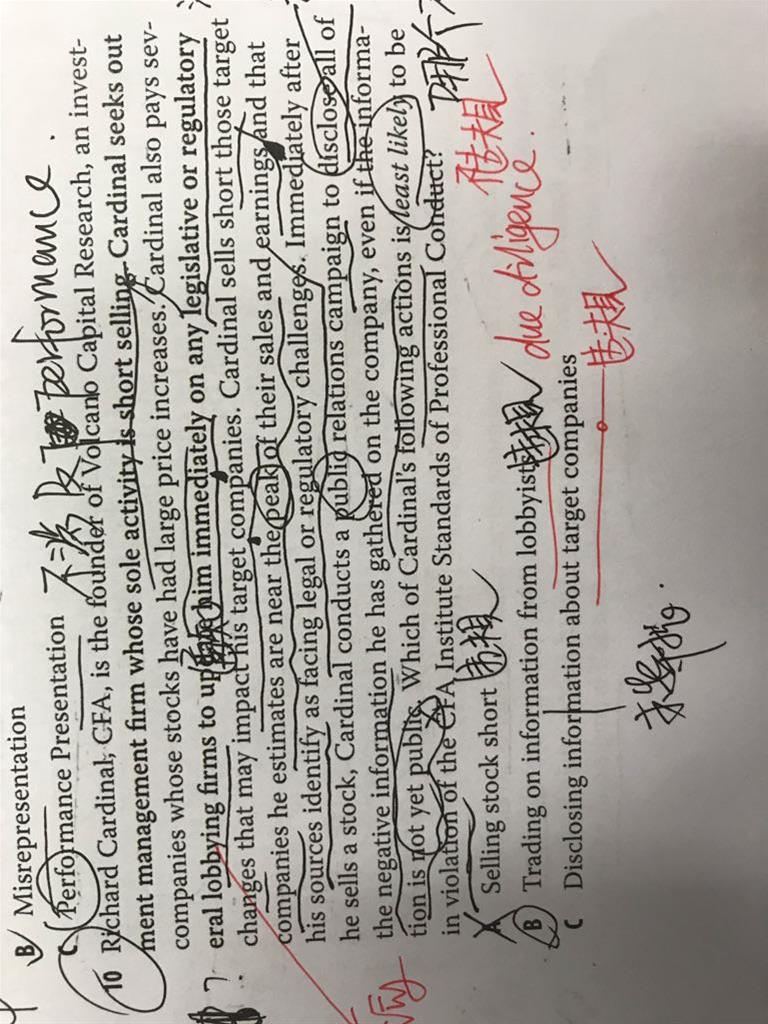 B Misrepresentation
C Performance Presentation 不涉及 performance.
10 Richard Cardinal, CFA, is the founder of Volcano Capital Research, an invest-
ment management firm whose sole activity is short selling. Cardinal seeks out
companies whose stocks have had large price increases. Cardinal also pays sev-
eral lobbying firms to update him immediately on any legislative or regulatory
changes that may impact his target companies. Cardinal sells short those target
companies he estimates are near the peak of their sales and earnings and that
his sources identify as facing legal or regulatory challenges. Immediately after
he sells a stock, Cardinal conducts a public relations campaign to disclose all of
the negative information he has gathered on the company, even if the informa-
tion is not yet public. Which of Cardinal's following actions is least likely to be
in violation of the CFA Institute Standards of Professional Conduct? 哪个
A Selling stock short 违规
B Trading on information from lobbyists 违规 due diligence.
C Disclosing information about target companies 违规